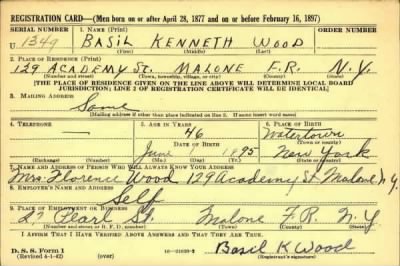 REGISTRATION CARD—(Men born on or after April 28, 1877 and on or before February 16, 1897)
SERIAL NUMBER 1. NAME (Print) ORDER NUMBER
U 1349 BASIL KENNETH WOOD
(First) (Middle) (Last)
2. PLACE OF RESIDENCE (Print)
129 ACADEMY St. MALONE F.R. N.Y.
(Number and street) (Town, township, village, or city) (County) (State)
[THE PLACE OF RESIDENCE GIVEN ON THE LINE ABOVE WILL DETERMINE LOCAL BOARD
JURISDICTION; LINE 2 OF REGISTRATION CERTIFICATE WILL BE IDENTICAL]
3. MAILING ADDRESS
Same
[Mailing address if other than place indicated on line 2. If same insert word same]
4. TELEPHONE 5. AGE IN YEARS 6. PLACE OF BIRTH
— 46 Watertown
DATE OF BIRTH (Town or county)
June 1895 New York
(Exchange) (Number) (Mo.) (Day) (Yr.) (State or country)
7. NAME AND ADDRESS OF PERSON WHO WILL ALWAYS KNOW YOUR ADDRESS
Mrs. Florence Wood 129 Academy St. Malone N.Y.
8. EMPLOYER'S NAME AND ADDRESS
Self
9. PLACE OF EMPLOYMENT OR BUSINESS
27 Pearl St. Malone F.R. N.Y
(Number and street or R. F. D. number) (Town) (County) (State)
I AFFIRM THAT I HAVE VERIFIED ABOVE ANSWERS AND THAT THEY ARE TRUE.
D. S. S. Form 1 Basil K Wood
(Revised 4-1-42) (over) (Registrant's signature)